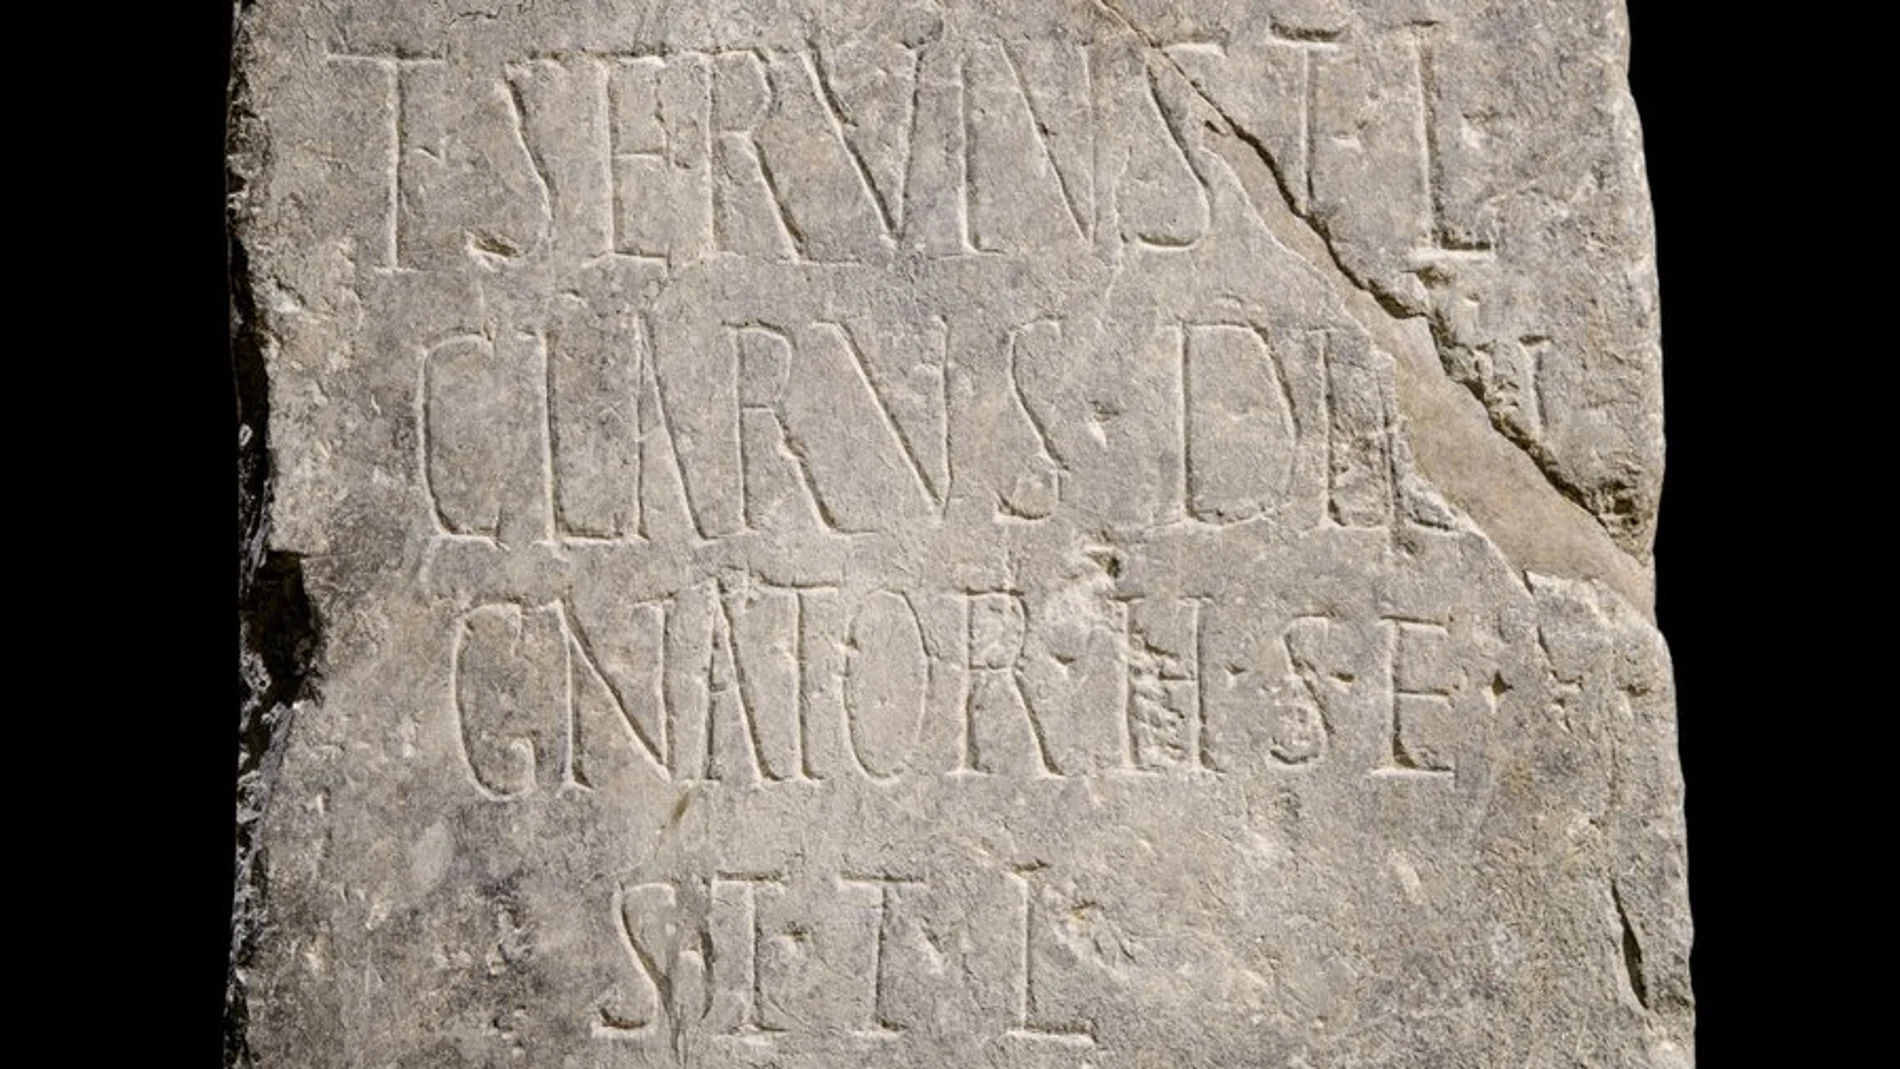 T·SERVIVS T·L
CLARVS·
GNATOR·H·S·E·
S·T·T·L